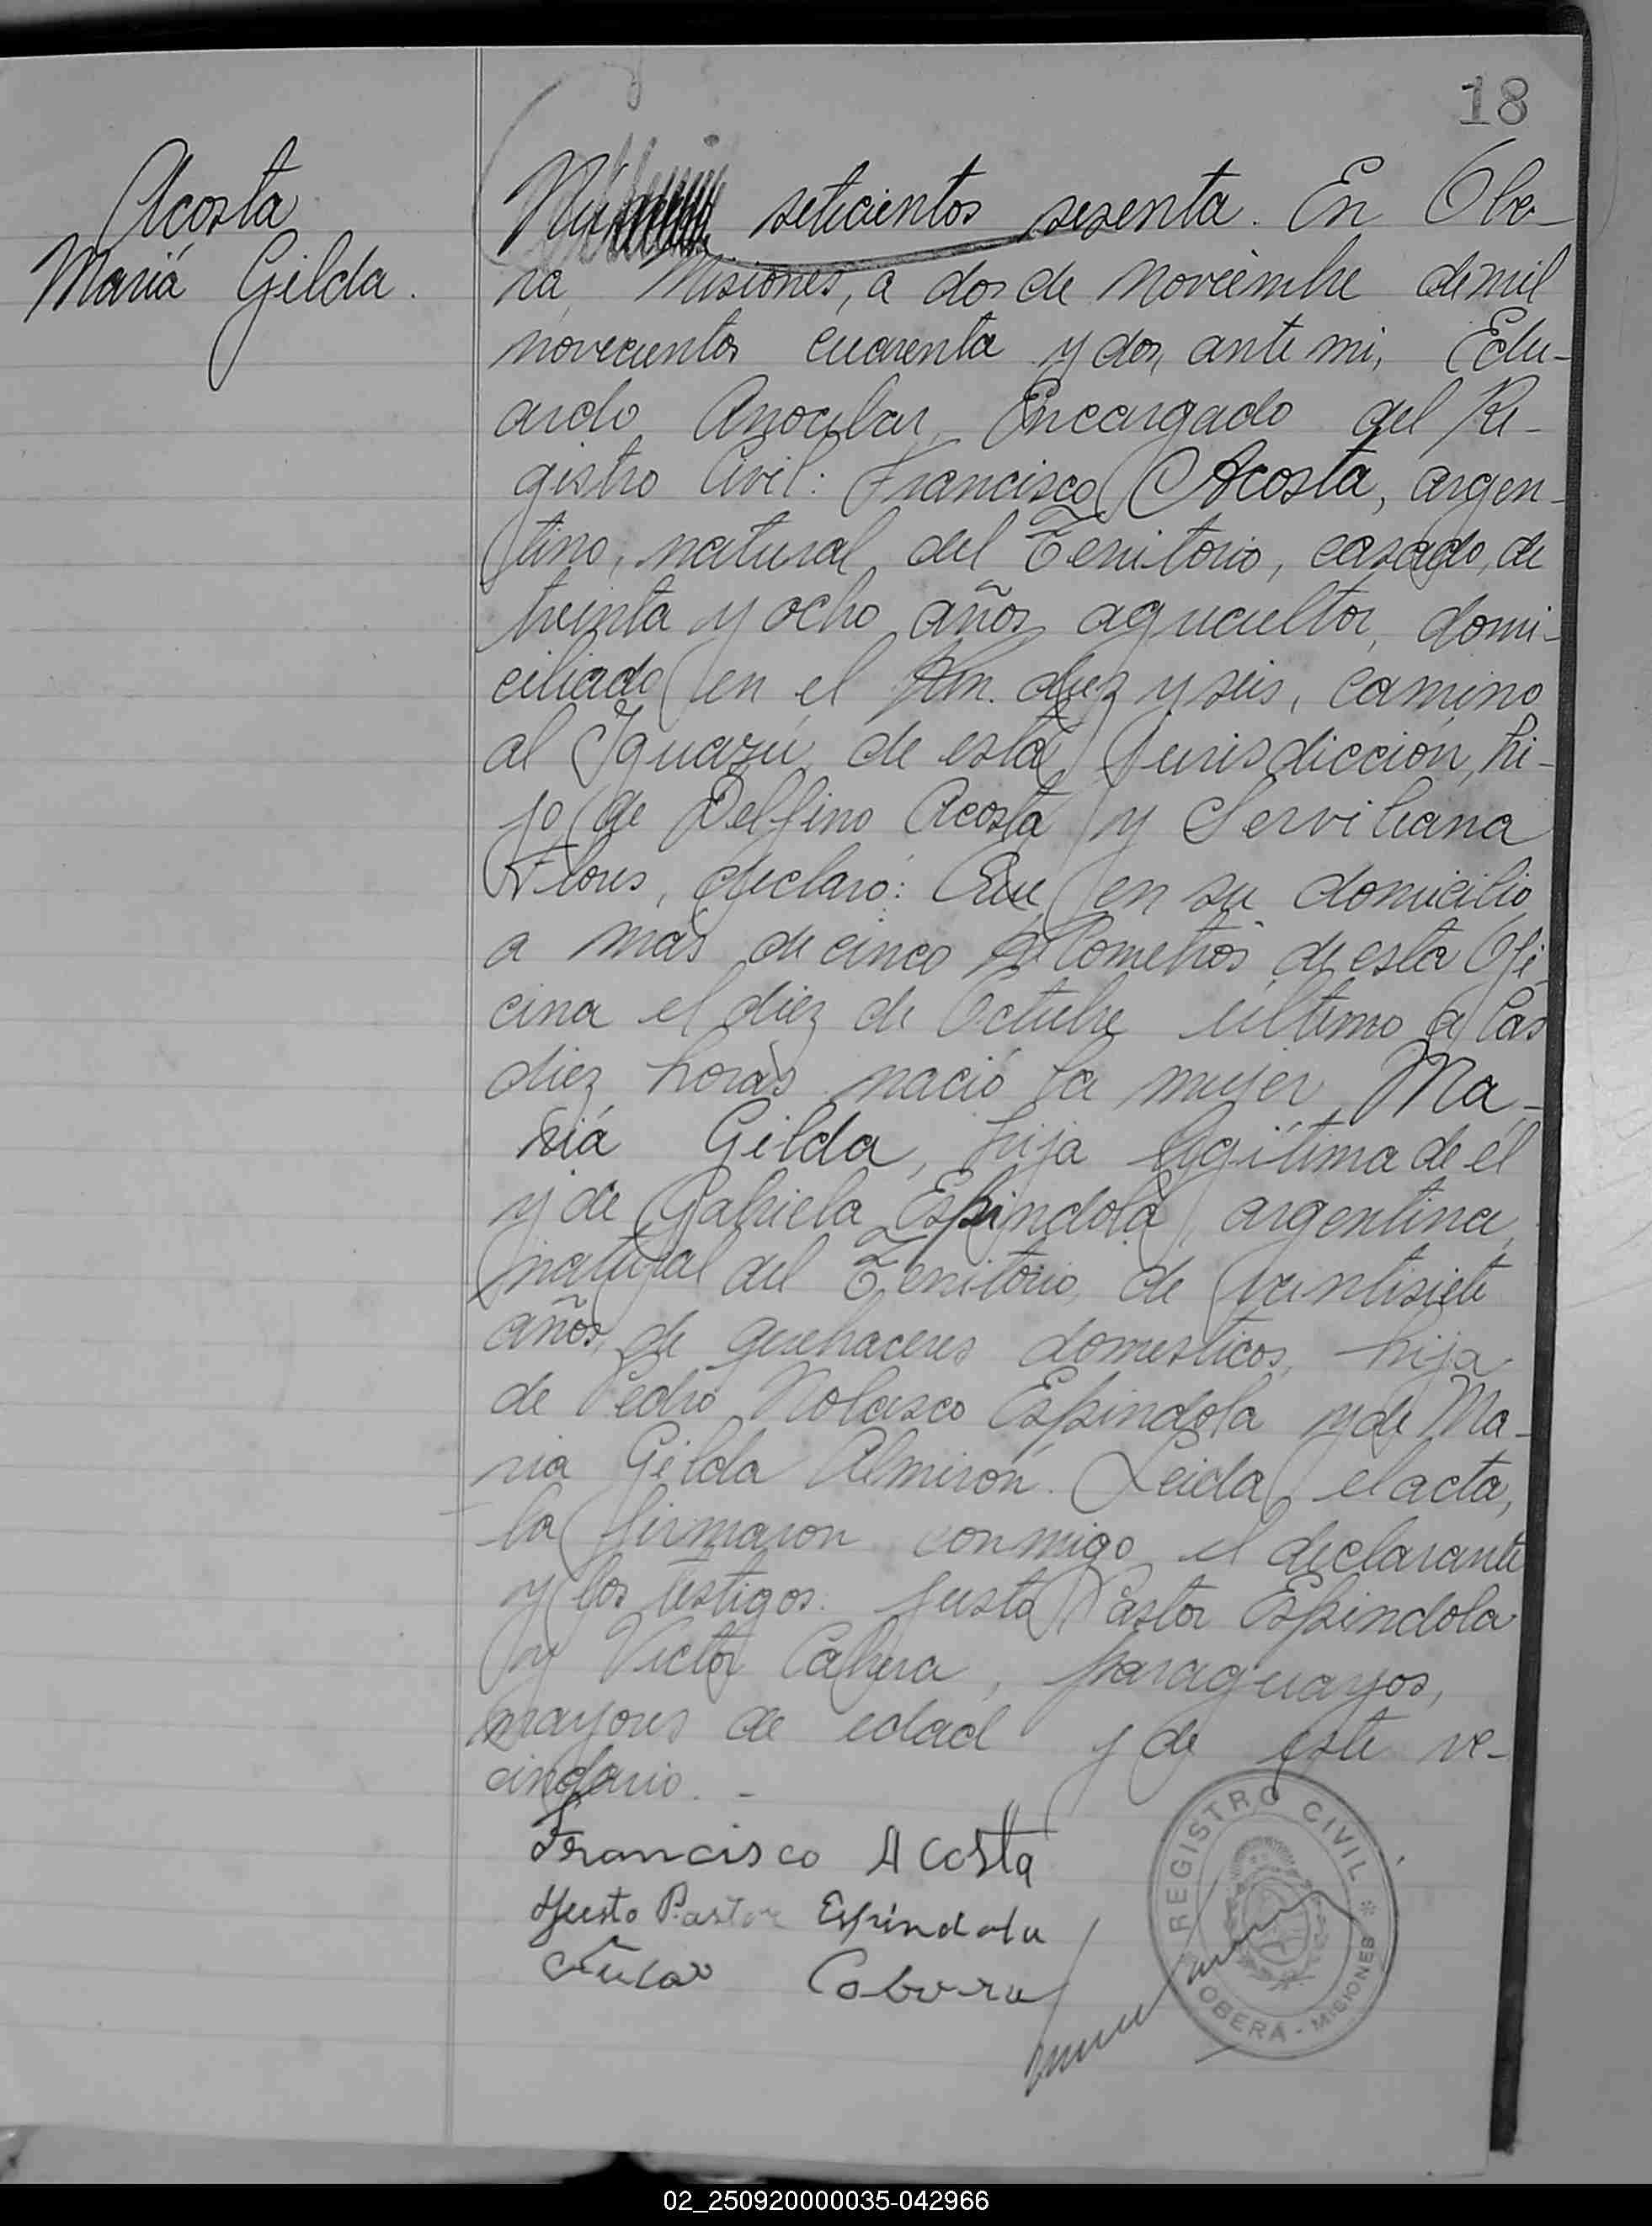 18
Acosta
Mariá Gilda.
seticientos sesenta. En Obe-
rá, Misiones, a dos de Noviembre de mil
novecientos cuarenta y dos, ante mi, Edu-
ardo Encargado del Re-
gistro Civil: Francisco Acosta, argen-
tino, natural del Territorio, casado, de
treinta y ocho años, agricultor, domi-
ciliado en el Km. diez y seis, camino
al Iguazú, de esta Jurisdicción, hi-
jo de Delfino Acosta y Serviliana
Flores, declaró: Que, en su domicilio
a más de cinco kilometros de esta Ofi-
cina el diez de Octubre último a las
diez horas nació la mujer, Ma-
riá Gilda, hija legítima de él
y de Gabriela Espindola, argentina,
natural del Territorio, de veintisiete
años, de quehaceres domesticos, hija
de Pedro Nolasco Espindola y de Ma-
ria Gilda Almirón. Leida el acta,
la firmaron conmigo el declarante
y los testigos: Justo Pastor Espindola
y Victor Cabrera, paraguayos,
mayores de edad y de este ve-
cindario. -
Francisco Acosta
Justo Pastor Espíndola
REGISTRO CIVIL *
OBERÁ - MISIONES
02_250920000035-042966